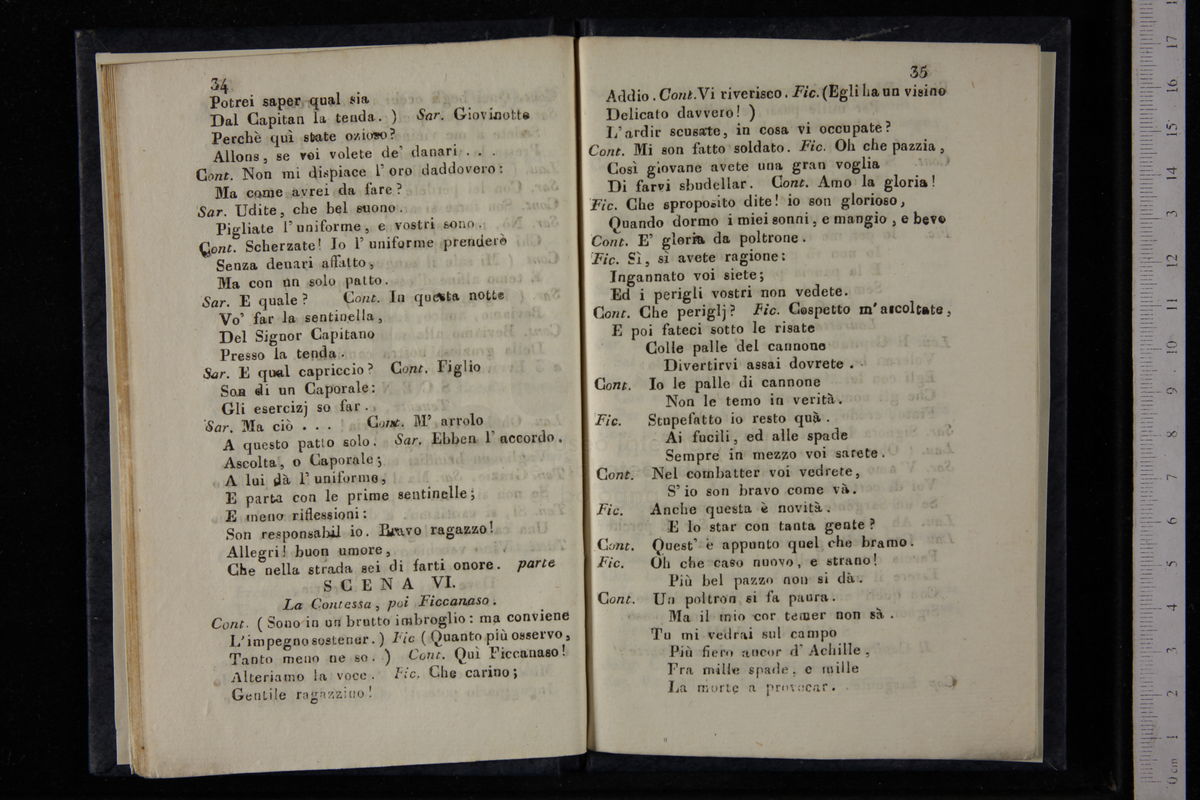 34
Potrei saper qual sia
Dal Capitan la tenda. ) Sar. Giovinotto
Perchè quì state ozioso?
Allons, se voi volete de' danari . . .
Cont. Non mi dispiace l' oro daddovero:
Ma come avrei da fare?
Sar. Udite, che bel suono.
Pigliate l' uniforme, e vostri sono.
Cont. Scherzate! Io l' uniforme prenderò
Senza denari affatto,
Ma con un solo patto.
Sar. E quale? Cont. In questa notte
Vo' far la sentinella,
Del Signor Capitano
Presso la tenda.
Sar. E qual capriccio? Cont. Figlio
Son di un Caporale:
Gli esercizj so far.
Sar. Ma ciò . . . Cont. M' arrolo
A questo patto solo. Sar. Ebben l' accordo.
Ascolta, o Caporale;
A lui dà l' uniforme,
E parta con le prime sentinelle;
E meno riflessioni:
Son responsabil io. Bravo ragazzo!
Allegri! buon umore,
Che nella strada sei di farti onore. parte
SCENA VI.
La Contessa, poi Ficcanaso.
Cont. ( Sono in un brutto imbroglio: ma conviene
L' impegno sostener. ) Fic ( Quanto più osservo,
Tanto meno ne so. ) Cont. Quì Ficcanaso!
Alteriamo la voce. Fic. Che carino;
Gentile ragazzino!
35
Addio. Cont. Vi riverisco. Fic. (Egli ha un visino
Delicato davvero! )
L' ardir scusate, in cosa vi occupate?
Cont. Mi son fatto soldato. Fic. Oh che pazzia,
Così giovane avete una gran voglia
Di farvi sbudellar. Cont. Amo la gloria!
Fic. Che sproposito dite! io son glorioso,
Quando dormo i miei sonni, e mangio, e bevo
Cont. E' gloria da poltrone.
Fic. Sì, sì avete ragione:
Ingannato voi siete;
Ed i perigli vostri non vedete.
Cont. Che periglj? Fic. Cospetto m' ascoltate,
E poi fateci sotto le risate
Colle palle del cannone
Divertirvi assai dovrete.
Cont. Io le palle di cannone
Non le temo in verità.
Fic. Stupefatto io resto quà.
Ai fucili, ed alle spade
Sempre in mezzo voi sarete.
Cont. Nel combatter voi vedrete,
S' io son bravo come và.
Fic. Anche questa è novità.
E lo star con tanta gente?
Cont. Quest' è appunto quel che bramo.
Fic. Oh che caso nuovo, e strano!
Più bel pazzo non si dà.
Cont. Un poltron si fa paura.
Ma il mio cor temer non sà.
Tu mi vedrai sul campo
Più fiero ancor d' Achille,
Fra mille spade, e mille
La morte a provocar.